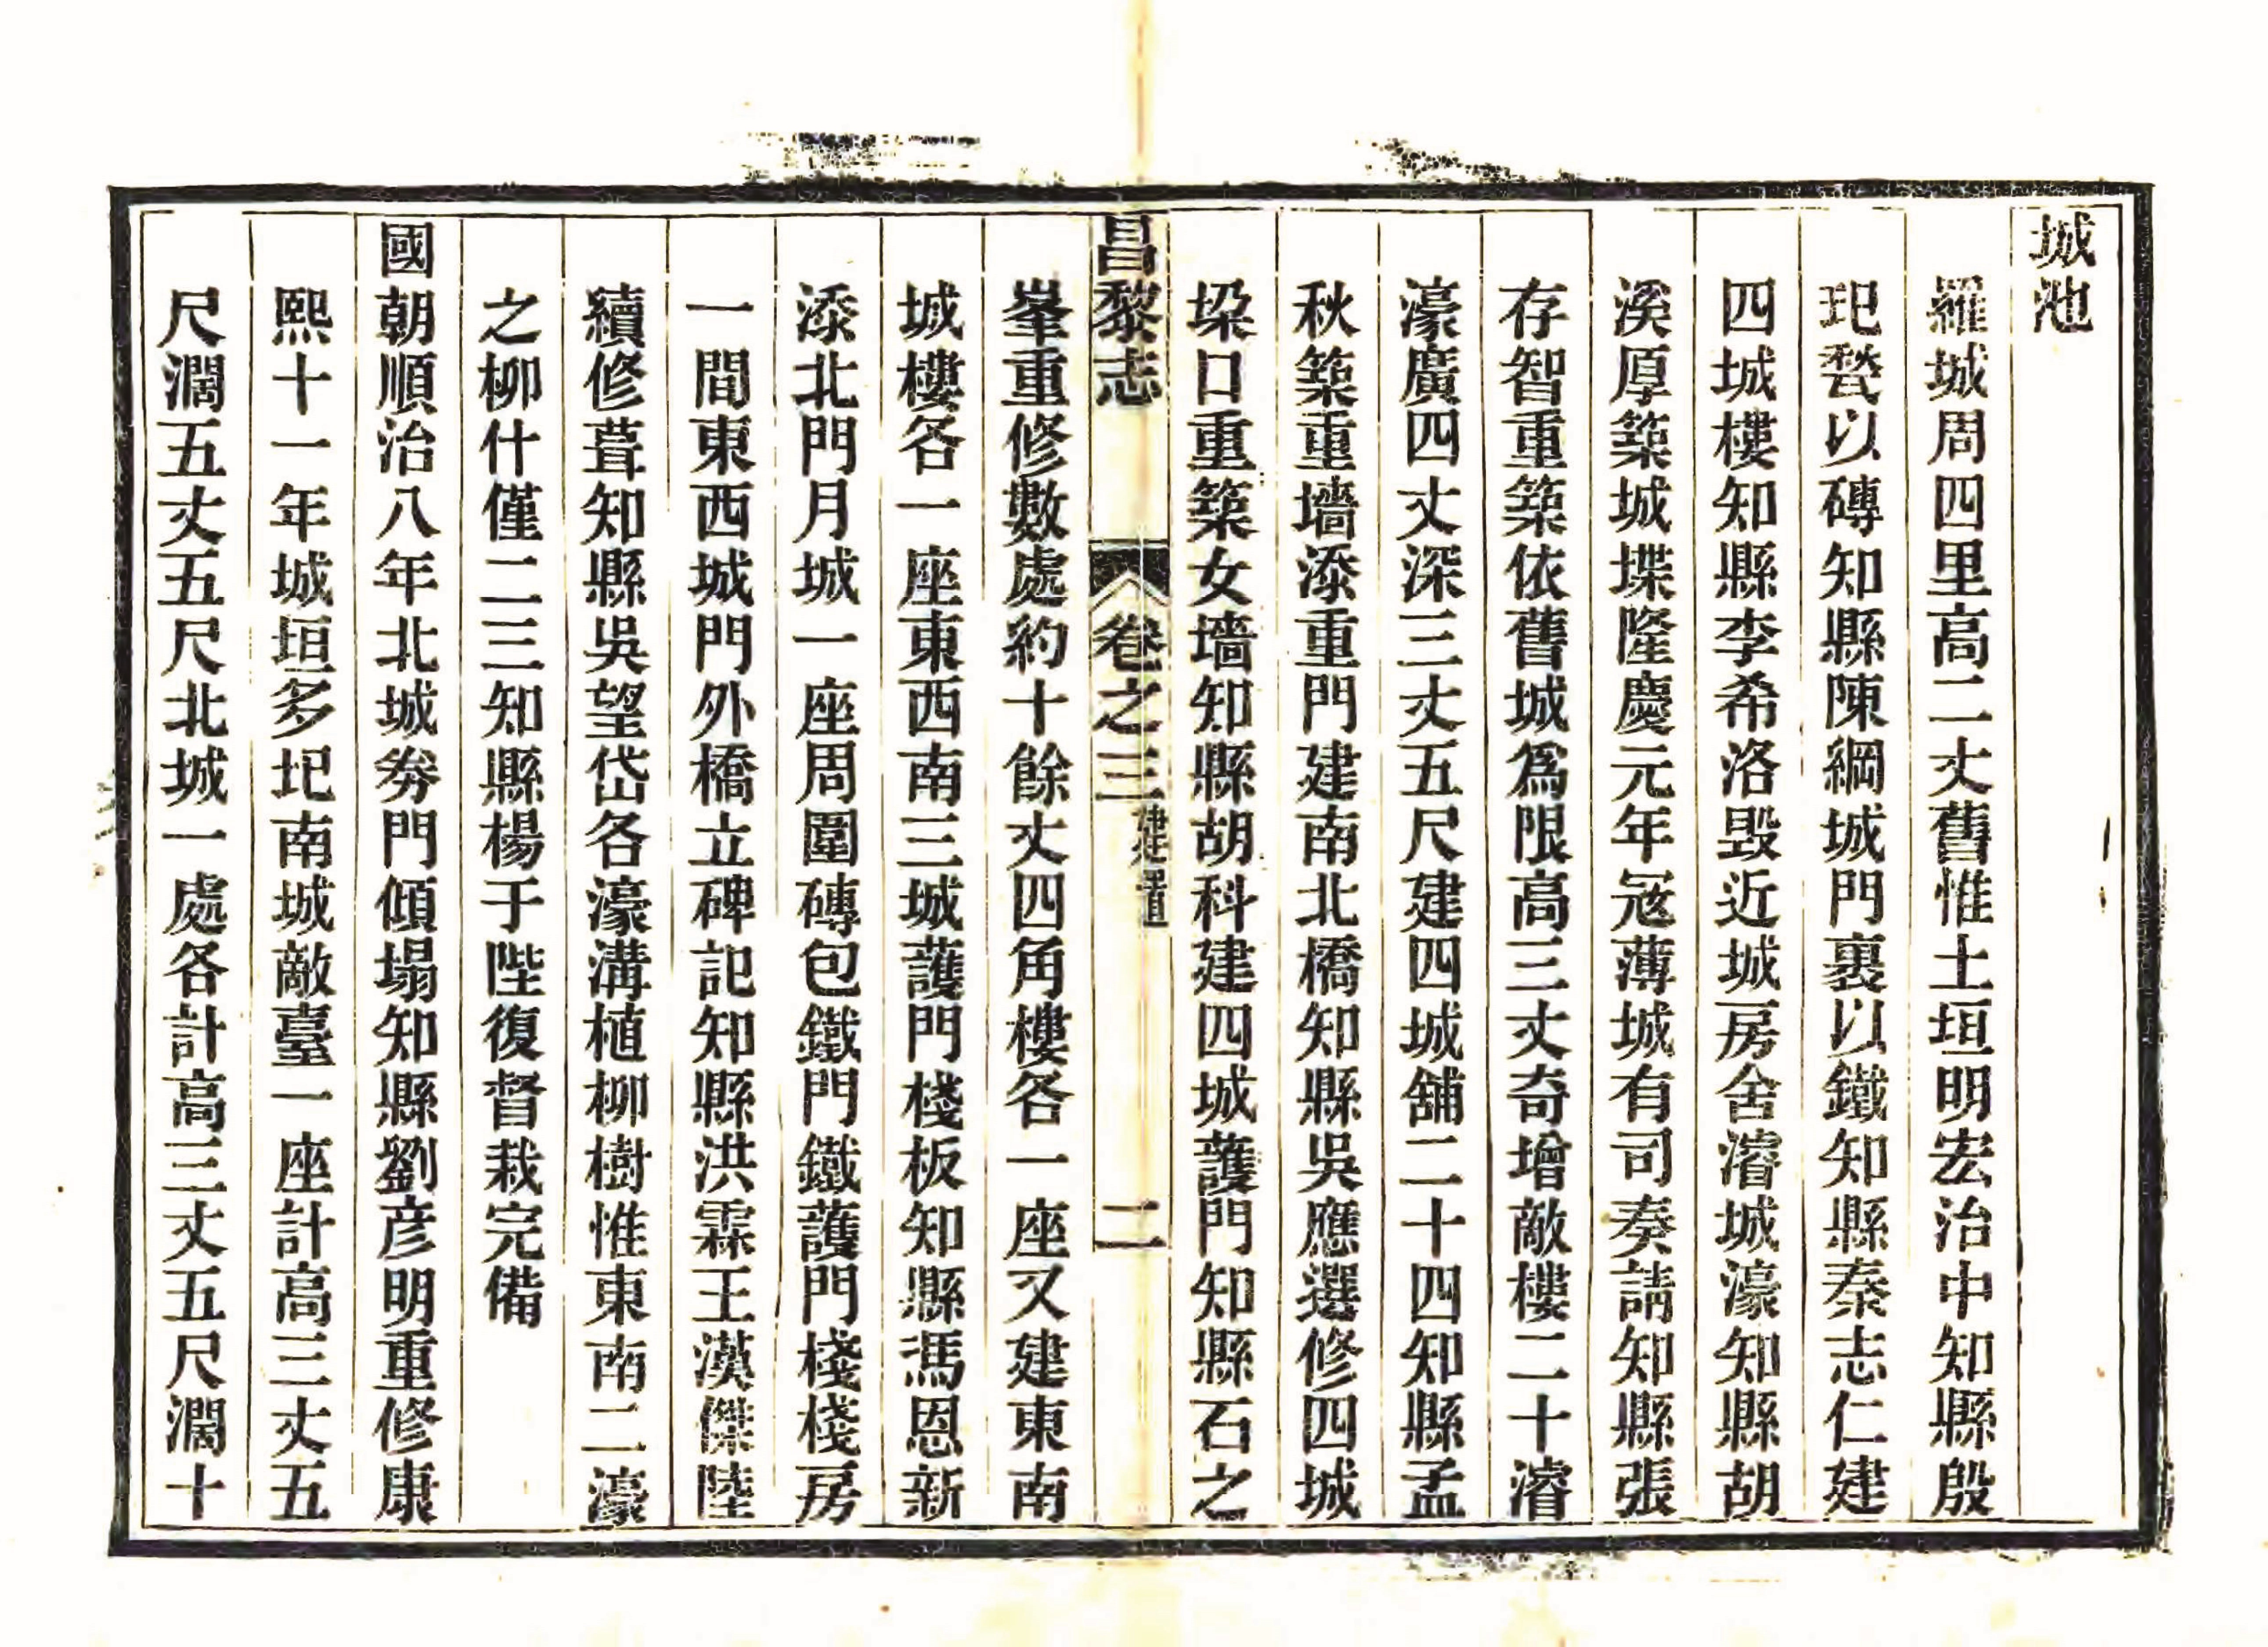 城池
羅城周四里高二丈舊惟土垣明宏治中知縣殷
玘甃以磚知縣陳綱城門裹以鐵知縣秦志仁建
四城樓知縣李希洛毀近城房舍濬城濠知縣胡
溪厚築城堞隆慶元年冦薄城有司奏請知縣張
存智重築依舊城爲限高三丈奇增敵樓二十濬
濠廣四丈深三丈五尺建四城舖二十四知縣孟
秋築重墻添重門建南北橋知縣吳應選修四城
垜口重築女墻知縣胡科建四城護門知縣石之
昌黎志 卷之三 建置 二
峯重修數處約十餘丈四角樓各一座又建東南
城樓各一座東西南三城護門棧板知縣馮恩新
添北門月城一座周圍磚包鐵門鐵護門棧棧房
一間東西城門外橋立碑記知縣洪霖王漢傑陸
續修葺知縣吳望岱各濠溝植柳樹惟東南二濠
之柳什僅二三知縣楊于陛復督栽完備
國朝順治八年北城劵門傾塌知縣劉彦明重修康
熙十一年城垣多圮南城敵臺一座計高三丈五
尺濶五丈五尺北城一處各計高三丈五尺濶十